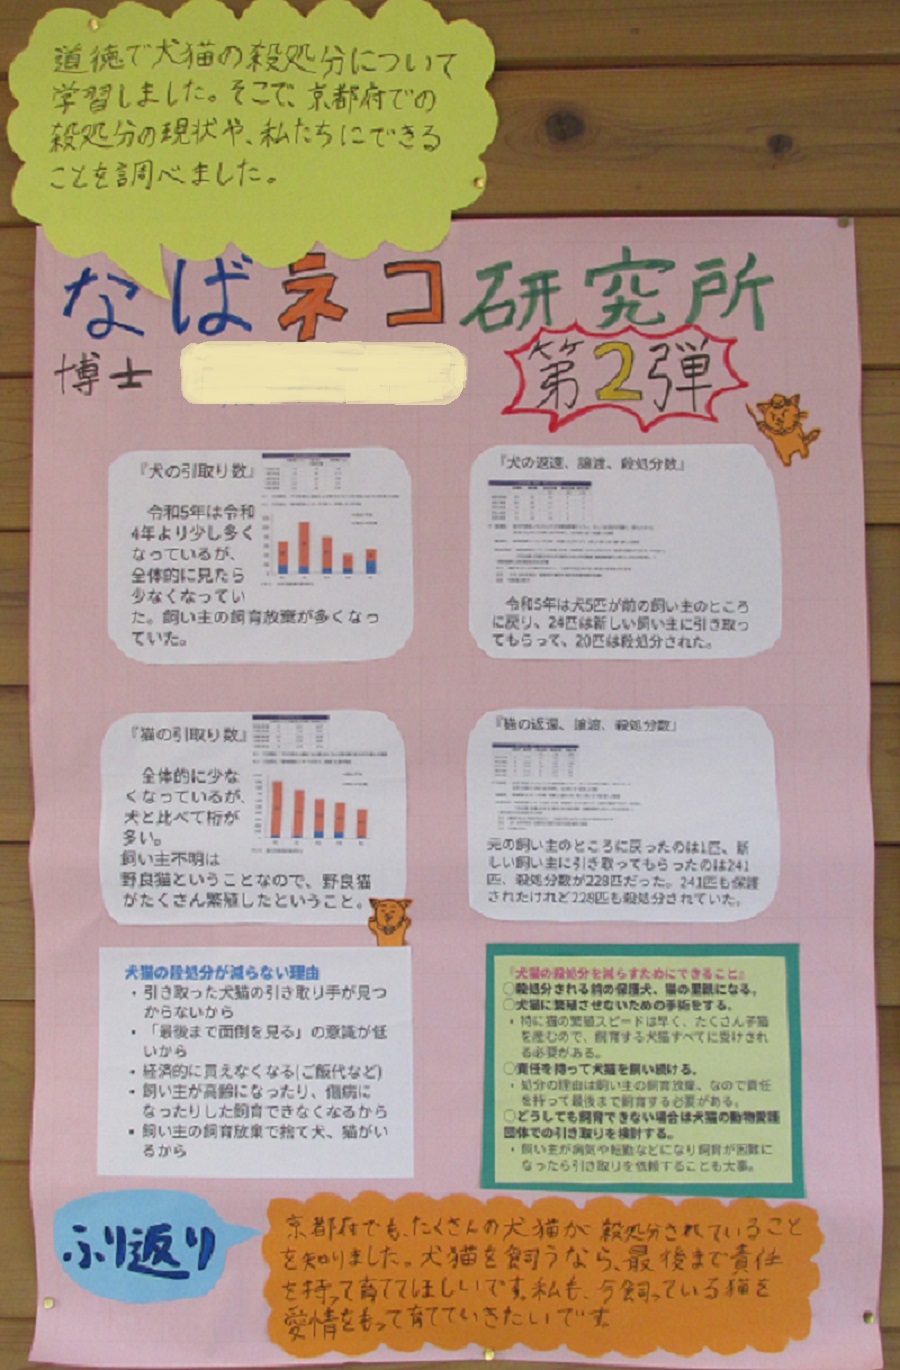 道徳で犬猫の殺処分について
学習しました。そこで、京都府での
殺処分の現状や、私たちにできる
ことを調べました。
なばネコ研究所
博士
第2弾
『犬の引取り数』
令和5年は令和
4年より少し多く
なっているが、
全体的に見たら
少なくなってい
た。飼い主の飼育放棄が多くなっ
ていた。
『犬の返還、譲渡、殺処分数』
令和5年は犬5匹が前の飼い主のところ
に戻り、24匹は新しい飼い主に引き取っ
てもらって、20匹は殺処分された。
『猫の引取り数』
全体的に少な
くなっているが、
犬と比べて桁が
多い。
飼い主不明は
野良猫ということなので、野良猫
がたくさん繁殖したということ。
『猫の返還、譲渡、殺処分数』
元の飼い主のところに戻ったのは1匹、新
しい飼い主に引き取ってもらったのは241
匹、殺処分数が228匹だった。241匹も保護
されたけれど228匹も殺処分されていた。
犬猫の殺処分が減らない理由
・引き取った犬猫の引き取り手が見つ
からないから
・「最後まで面倒を見る」の意識が低
いから
・経済的に買えなくなる(ご飯代など)
・飼い主が高齢になったり、傷病に
なったりした飼育できなくなるから
・飼い主の飼育放棄で捨て犬、猫がい
るから
『犬猫の殺処分を減らすためにできること』
〇殺処分される前の保護犬、猫の里親になる。
〇犬猫に繁殖させないための手術をする。
・特に猫の繁殖スピードは早く、たくさん子猫
を産むので、飼育する犬猫すべてに受けされ
る必要がある。
〇責任を持って犬猫を飼い続ける。
・処分の理由は飼い主の飼育放棄、なので責任
を持って最後まで飼育する必要がある。
〇どうしても飼育できない場合は犬猫の動物愛護
団体での引き取りを検討する。
・飼い主が病気や転勤などになり飼育が困難に
なったら引き取りを依頼することも大事。
ふり返り
京都府でも、たくさんの犬猫が殺処分されていること
を知りました。犬猫を飼うなら、最後まで責任
を持って育ててほしいです。私も、今飼っている猫を
愛情をもって育てていきたいです。